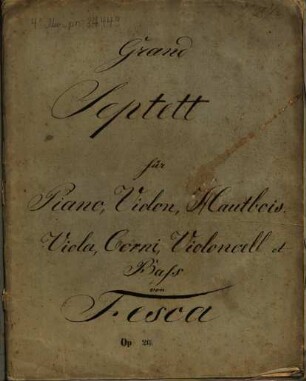 4° Mus. pr. 34449
Grand
Septett
für
Piano, Violon, Hautbois,
Viola, Corni, Violoncell et
Baſs
von
Fesca
Op 26.